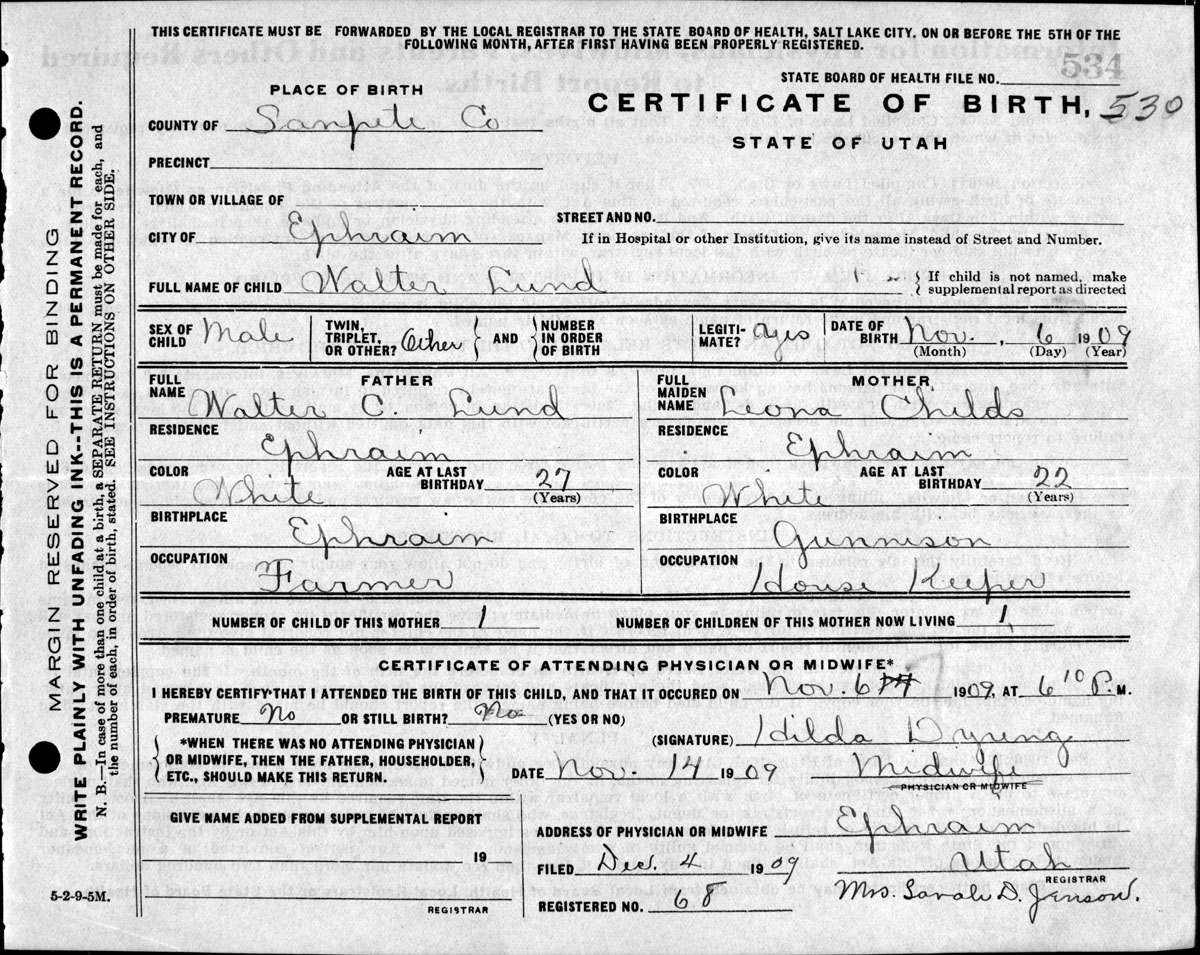 THIS CERTIFICATE MUST BE FORWARDED BY THE LOCAL REGISTRAR TO THE STATE BOARD OF HEALTH, SALT LAKE CITY. ON OR BEFORE THE 5TH OF THE
FOLLOWING MONTH, AFTER FIRST HAVING BEEN PROPERLY REGISTERED.
534
STATE BOARD OF HEALTH FILE NO.
PLACE OF BIRTH
CERTIFICATE OF BIRTH, 530
COUNTY OF Sanpete Co
STATE OF UTAH
PRECINCT
TOWN OR VILLAGE OF
STREET AND NO.
CITY OF Ephraim
If in Hospital or other Institution, give its name instead of Street and Number.
FULL NAME OF CHILD Walter Lund
{ If child is not named, make
supplemental report as directed
SEX OF CHILD Male
TWIN, TRIPLET, OR OTHER? Other } AND { NUMBER IN ORDER OF BIRTH
LEGITIMATE? Yes
DATE OF BIRTH Nov., 6 1909
(Month) (Day) (Year)
FATHER
FULL NAME Walter C. Lund
RESIDENCE Ephraim
COLOR White AGE AT LAST BIRTHDAY 27
(Years)
BIRTHPLACE Ephraim
OCCUPATION Farmer
MOTHER
FULL MAIDEN NAME Leona Childs
RESIDENCE Ephraim
COLOR White AGE AT LAST BIRTHDAY 22
(Years)
BIRTHPLACE Gunnison
OCCUPATION House Keeper
NUMBER OF CHILD OF THIS MOTHER 1 NUMBER OF CHILDREN OF THIS MOTHER NOW LIVING 1
CERTIFICATE OF ATTENDING PHYSICIAN OR MIDWIFE*
I HEREBY CERTIFY THAT I ATTENDED THE BIRTH OF THIS CHILD, AND THAT IT OCCURED ON Nov. 6 1909, AT 6 10 P. M.
PREMATURE No OR STILL BIRTH? No (YES OR NO)
{ *WHEN THERE WAS NO ATTENDING PHYSICIAN
OR MIDWIFE, THEN THE FATHER, HOUSEHOLDER,
ETC., SHOULD MAKE THIS RETURN. }
(SIGNATURE) Hilda Dyreng
DATE Nov. 14 1909 Midwife
PHYSICIAN OR MIDWIFE
GIVE NAME ADDED FROM SUPPLEMENTAL REPORT
19
REGISTRAR
ADDRESS OF PHYSICIAN OR MIDWIFE Ephraim
Utah
FILED Dec. 4 1909
REGISTRAR
REGISTERED NO. 68 Mrs. Sarah D. Jenson.
5-2-9-5M.
MARGIN RESERVED FOR BINDING
WRITE PLAINLY WITH UNFADING INK--THIS IS A PERMANENT RECORD.
N. B.—In case of more than one child at a birth, a SEPARATE RETURN must be made for each, and
the number of each, in order of birth, stated. SEE INSTRUCTIONS ON OTHER SIDE.